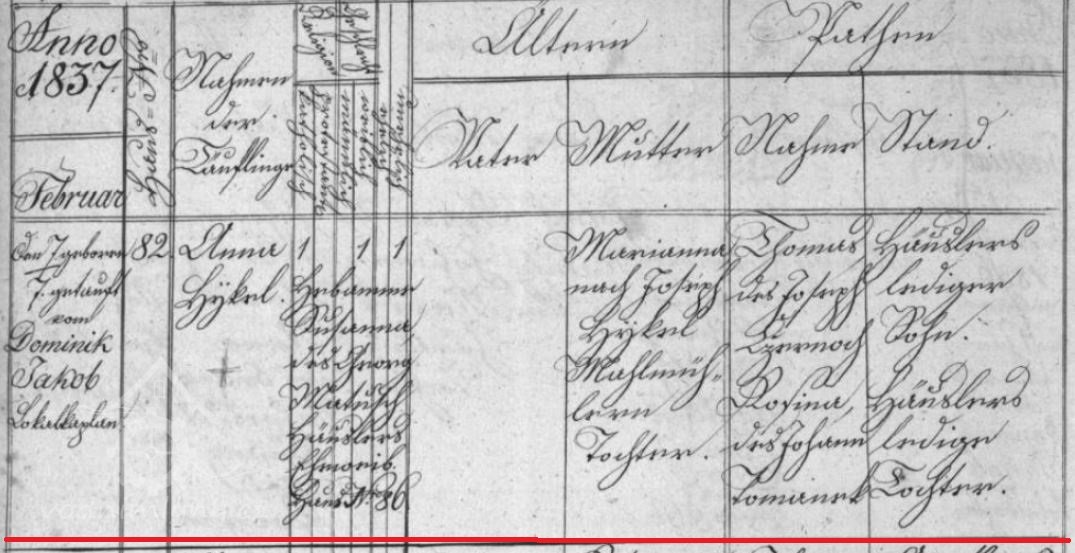 Anno
1837.
Februar
Haus=Nro
Nahmen
der
Täuflinge
Religion
katholisch
protestantisch
Geschlecht
männlich
weiblich
ehelich
unehelich
Ältern
Vater
Mutter
Pathen
Nahme
Stand.
den 7 geboren
7. getauft
vom
Dominik
Jakob
Lokalkaplan
82.
Anna
Hykel.
1
1
1
Hebamme
Susanna
des Georg
Matusch
Häuslers
Haus Nro 86
Marianna
nach Joseph
Hykel
Mahlmüh-
lern
Tochter.
Thomas
des Joseph
Czernoch
Rosina,
des Johann
Tomanek
Häuslers
lediger
Sohn.
Häuslers
ledige
Tochter.